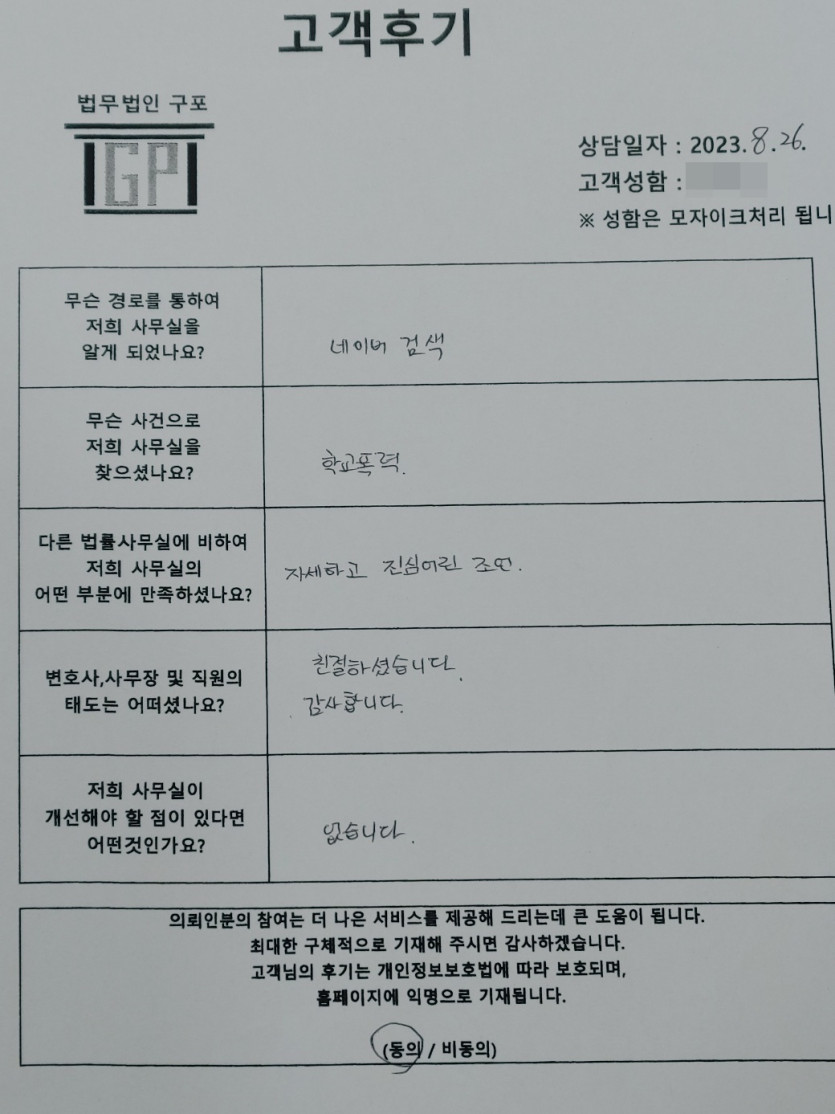 고객후기
법무법인 구포
GP
상담일자 : 2023. 8. 26.
고객성함 :
※ 성함은 모자이크처리 됩니
무슨 경로를 통하여
저희 사무실을
알게 되었나요?
네이버 검색
무슨 사건으로
저희 사무실을
찾으셨나요?
학교폭력.
다른 법률사무실에 비하여
저희 사무실의
어떤 부분에 만족하셨나요?
자세하고 진심어린 조언.
변호사,사무장 및 직원의
태도는 어떠셨나요?
친절하셨습니다.
감사합니다.
저희 사무실이
개선해야 할 점이 있다면
어떤것인가요?
없습니다.
의뢰인분의 참여는 더 나은 서비스를 제공해 드리는데 큰 도움이 됩니다.
최대한 구체적으로 기재해 주시면 감사하겠습니다.
고객님의 후기는 개인정보보호법에 따라 보호되며,
홈페이지에 익명으로 기재됩니다.
(동의 / 비동의)